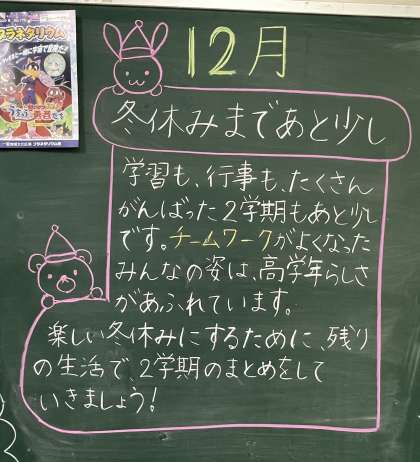 プラネタリウム
12月
冬休みまであと少し
学習も、行事も、たくさん
がんばった2学期もあと少し
です。チームワークがよくなった
みんなの姿は、高学年らしさ
があふれています。
楽しい冬休みにするために、残り
の生活で2学期のまとめをして
いきましょう!